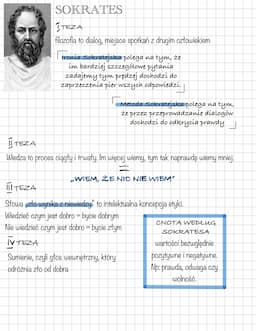 SOKRATES
I TEZA
filozofia to dialog, miejsce spotkań z drugim człowiekiem
Ironia Sokratejska polega na tym, że
im bardziej szczegółowe pytania
zadajemy tym prędzej dochodzi do
zaprzeczenia pier wszych odpowiedzi.
Metoda Sokratejska polega na tym,
że przez przeprowadzanie dialogów
dochodzi do odkrycia prawdy
II TEZA
Wiedza to proces ciągły i trwały. Im więcej wiemy, tym tak naprawdę wiemy mniej.
=
„WIEM, ŻE NIC NIE WIEM"
III TEZA
Słowa „zło wynika z niewiedzy" to intelektualna koncepcja etyki.
Wiedzieć czym jest dobro = bycie dobrym
Nie wiedzieć czym jest dobro = bycie złym
IV TEZA
Sumienie, czyli głos wewnętrzny, który
odróżnia zło od dobra
CNOTA WEDŁUG
SOKRATESA
wartości bezwzględnie
pozytywne i negatywne.
Np: prawda, odwaga czy
wolność.